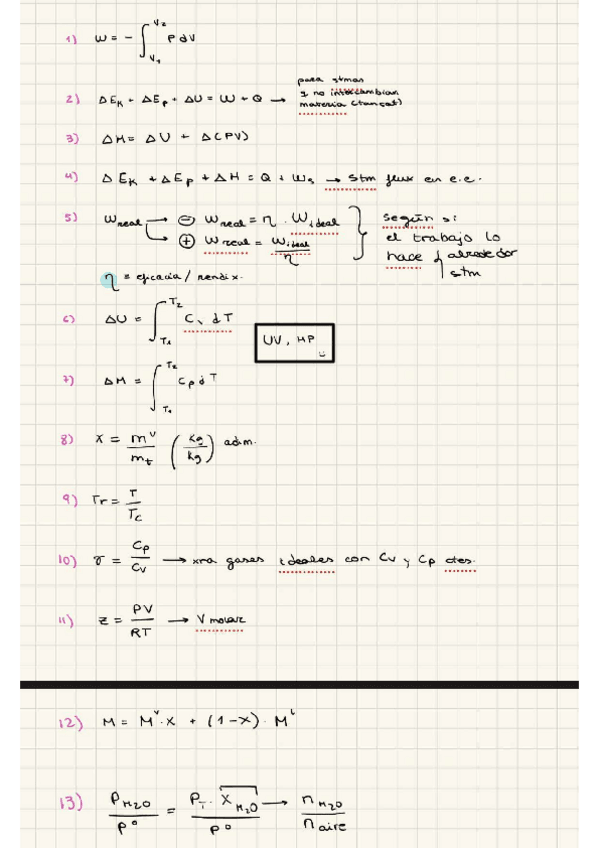 1) W = - ∫_{V1}^{V2} P dV
2) ΔEk + ΔEp + ΔU = W + Q → para stmas q no intercambian materia (tancat)
3) ΔH = ΔU + Δ(PV)
4) ΔEk + ΔEp + ΔH = Q + Ws → stm flux en e.e.
5) Wreal → ⊖ Wreal = η · Wideal
→ ⊕ Wreal = Wideal / η
según si: el trabajo lo hace { alrededor
stm
η = eficacia / rendix.
6) ΔU = ∫_{T1}^{T2} Cv dT
UV, HP
7) ΔH = ∫_{T1}^{T2} Cp dT
8) X = m^v / mt (kg / kg) adim.
9) Tr = T / Tc
10) γ = Cp / Cv → xra gases ideales con Cv y Cp ctes.
11) Z = PV / RT → V molar
12) M = M^v · X + (1-X) · M^l
13) P_{H2O} / P° = P_T · X_{H2O} / P° → n_{H2O} / n aire